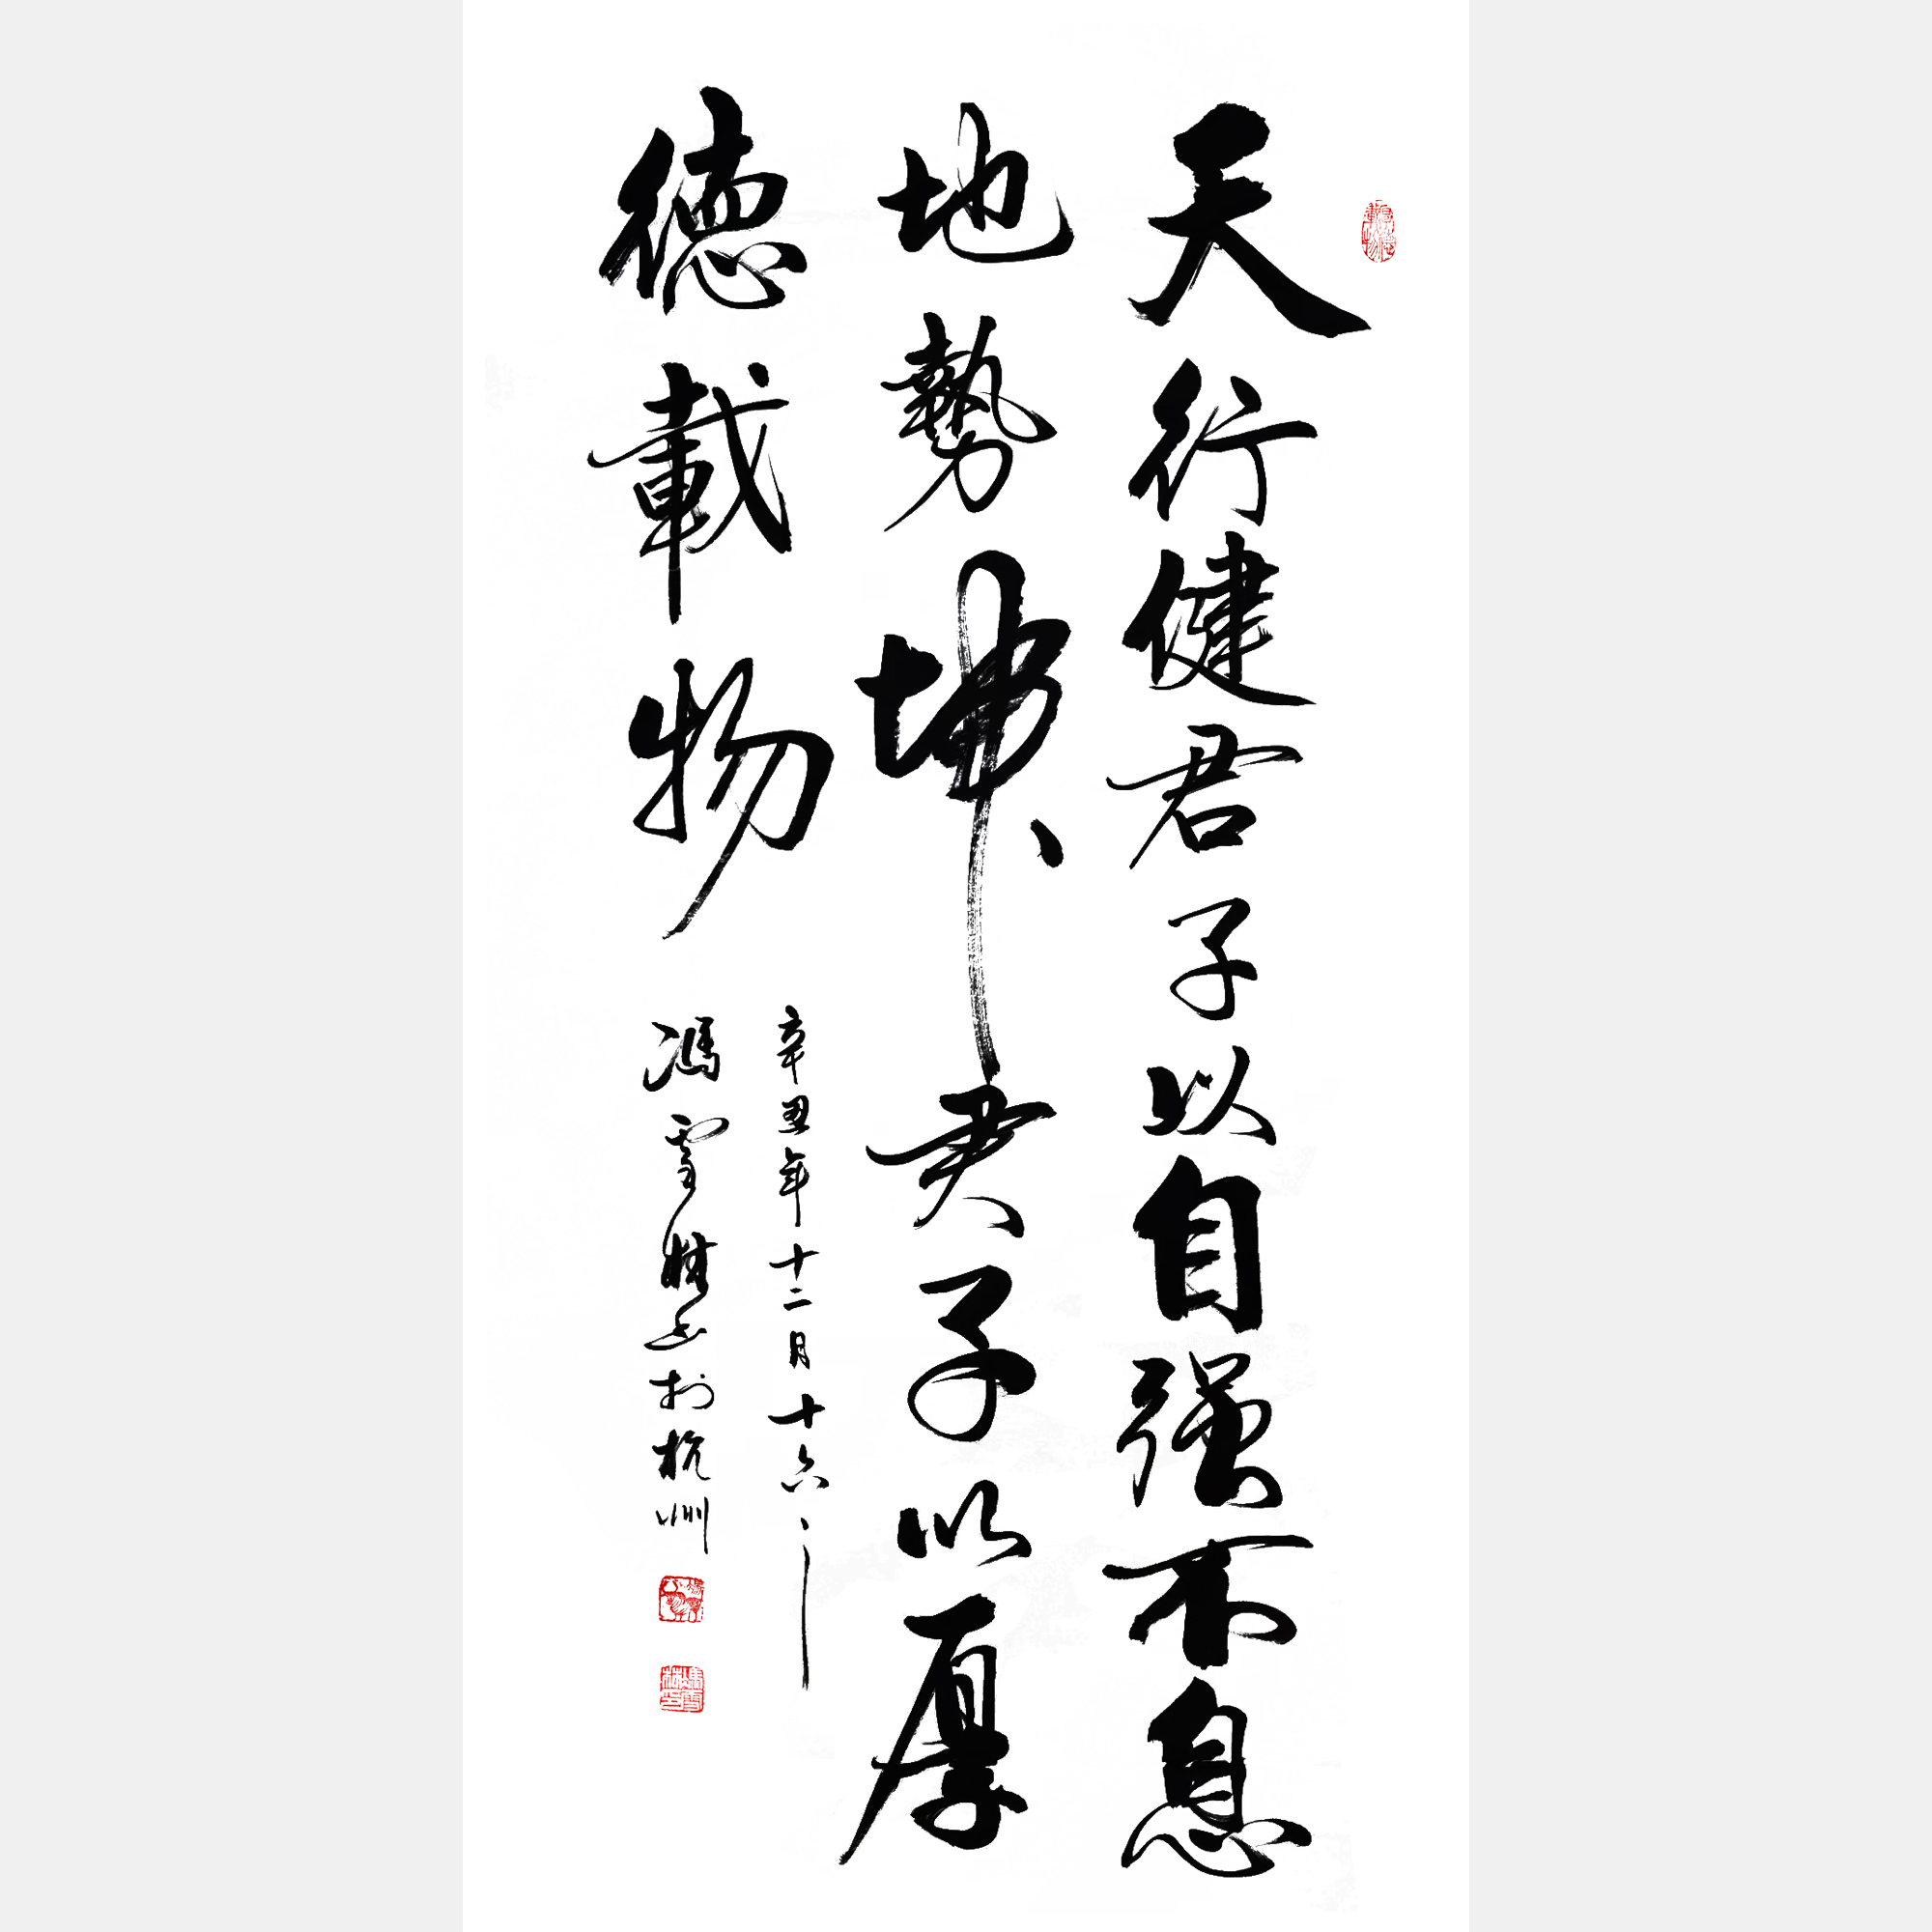 天行健君子以自强不息
地勢坤君子以厚
德載物
辛丑年十二月十六
馮雪林書於杭州